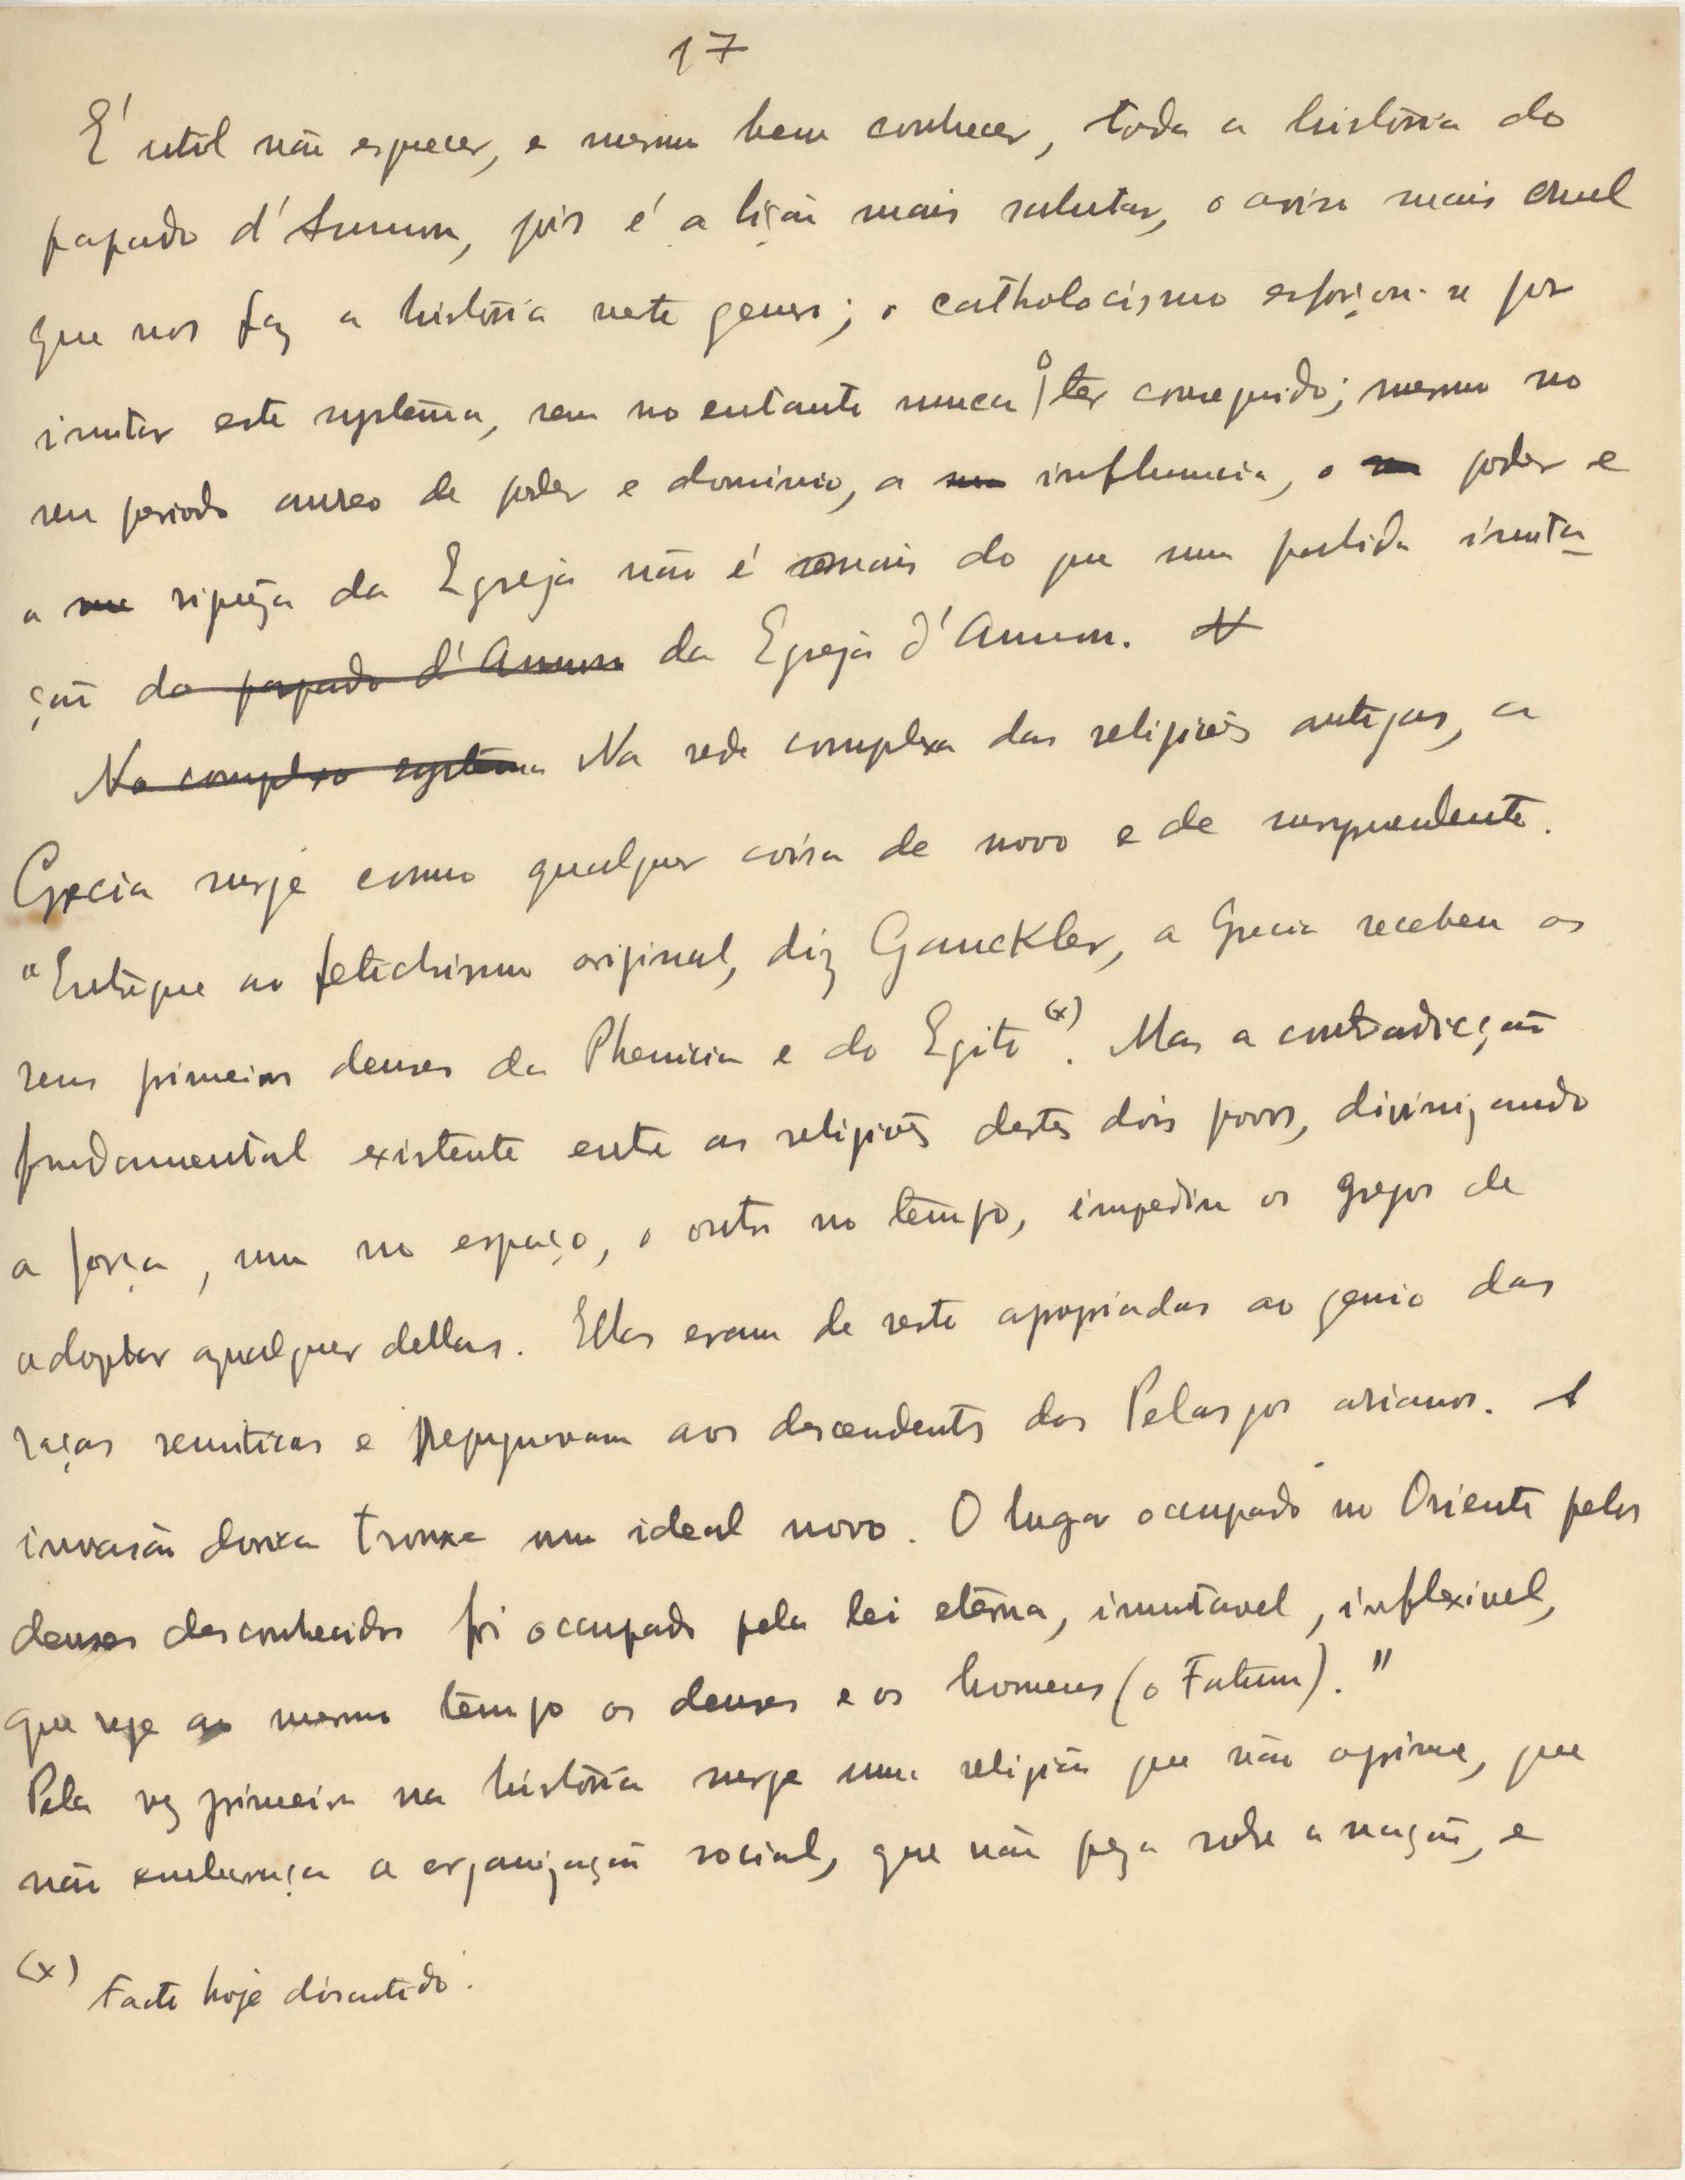 17
É util não esquecer, e mesmo bem conhecer, toda a história do
papado d'Ammon, pois é a lição mais salutar, o aviso mais cruel
que nos faz a história neste genero; o catholocismo esforçou-se por
imitar este systema, sem no entanto nunca o ter conseguido; mesmo no
seu periodo aureo de poder e dominio, a sua influencia, o seu poder e
a sua riqueza da Egreja não é mais do que uma pallida imita-
ção do papado d'Ammon da Egreja d'Ammon. N
No complexo systema Na rede complexa das religiões antigas, a
Grecia surje como qualquer coisa de novo e de surprendente.
"Entregue ao fetichismo original, diz Gauckler, a Grecia recebeu os
seus primeiros deuses da Phenicia e do Egito (x). Mas a contradicção
fundamental existente entre as religiões destes dois povos, divinizando
a força, um no espaço, o outro no tempo, impediu os gregos de
adoptar qualquer dellas. Ellas eram de resto apropriadas ao genio das
raças semiticas e repugnavam aos descendentes dos Pelasgos arianos. A
invasão dorica trouxe um ideal novo. O lugar occupado no Oriente pelos
deuses desconhecidos foi occupado pela lei eterna, imutavel, inflexivel,
que reje ao mesmo tempo os deuses e os homens (o Fatum)."
Pela vez primeira na história surge uma religião que não oprime, que
não embaraça a organização social, que não peza sobre a nação, e
(x) Facto hoje discutido.